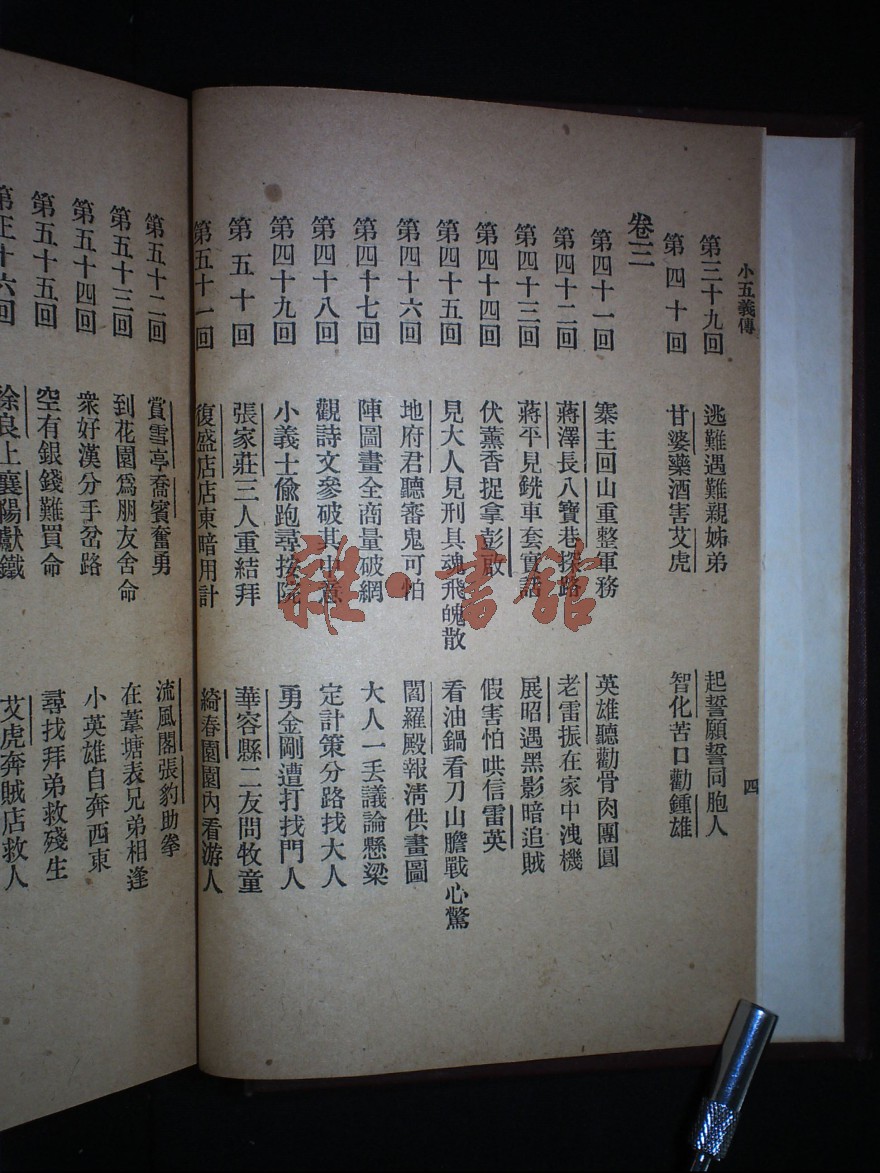 小五義傳
四
第三十九回 逃難遇難親姊弟 起誓願誓同胞人
第四十回 甘婆藥酒害艾虎 智化苦口勸鍾雄
卷三
第四十一回 寨主回山重整軍務 英雄聽勸骨肉團圓
第四十二回 蔣澤長八寶巷探路 老雷振在家中洩機
第四十三回 蔣平見銑車套實話 展昭遇黑影暗追賊
第四十四回 伏薰香捉拿彭啟 假害怕哄信雷英
第四十五回 見大人見刑具魂飛魄散 看油鍋看刀山膽戰心驚
第四十六回 地府君聽審鬼可怕 閻羅殿報淸供畫圖
第四十七回 陣圖畫全商量破網 大人一丢議論懸梁
第四十八回 觀詩文參破其中意 定計策分路找大人
第四十九回 小義士偸跑尋按院 勇金剛遭打找門人
第五十回 張家莊三人重結拜 華容縣二友問牧童
第五十一回 復盛店店東暗用計 綺春園園內看游人
第五十二回 賞雪亭喬賓奮勇 流風閣張豹助拳
第五十三回 到花園爲朋友舍命 在葦塘表兄弟相逢
第五十四回 衆好漢分手岔路 小英雄自奔西東
第五十五回 空有銀錢難買命 尋找拜弟救殘生
第五十六回 徐良上襄陽獻鐵 艾虎奔賊店救人
雜·書館